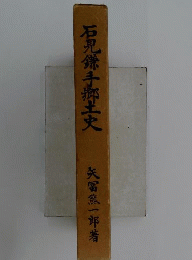 石見鎌手郷土史
矢冨熊一郎著